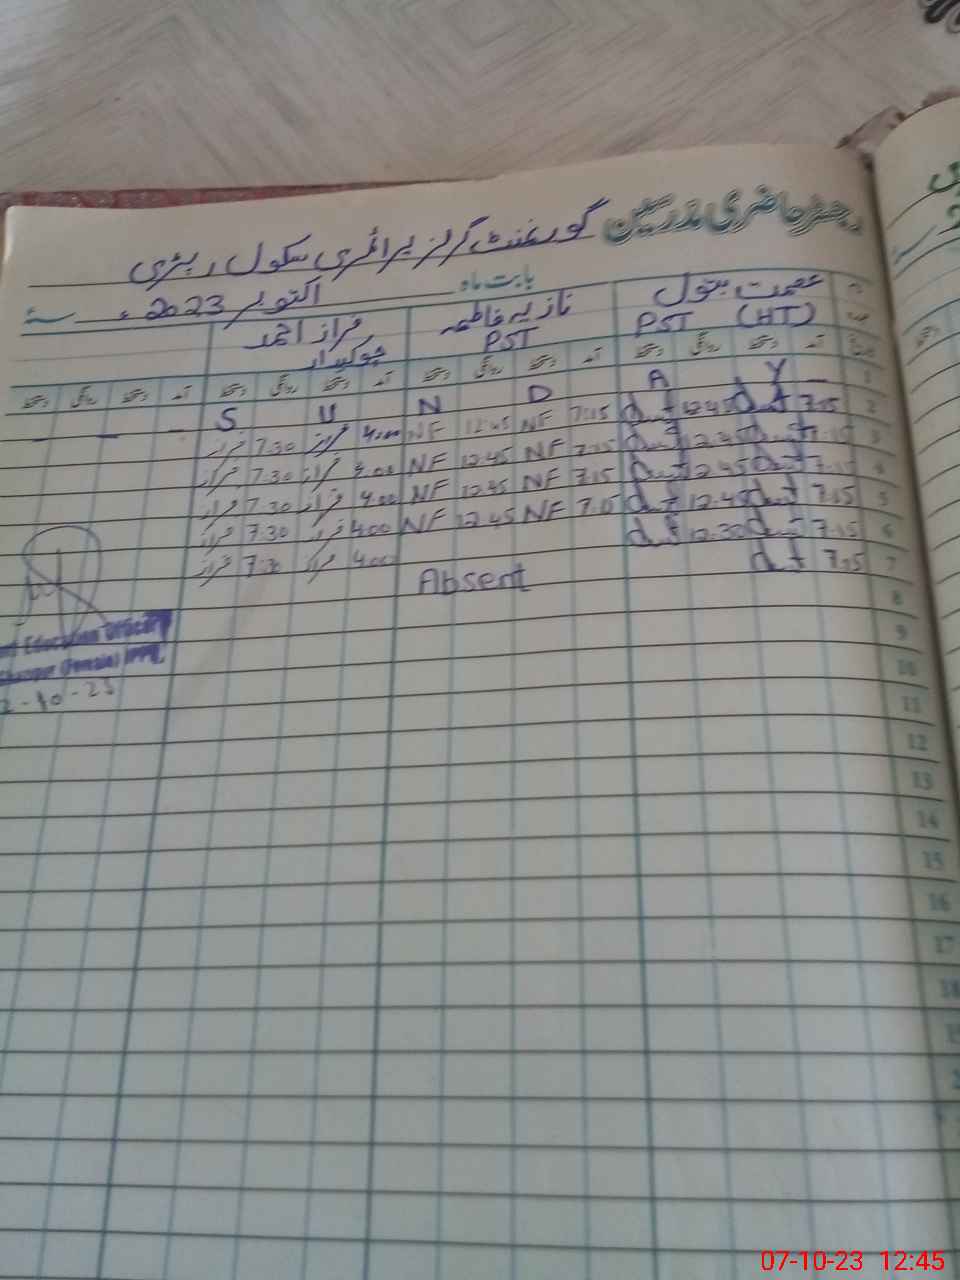 رجسٹر حاضری مدرسین گورنمنٹ گرلز پرائمری سکول رہڑی
بابت ماہ اکتوبر 2023ء
عصمت بتول نازیہ فاطمہ فراز احمد
(HT) PST PST چوکیدار
آمد دستخط روانگی دستخط آمد دستخط روانگی دستخط آمد دستخط روانگی دستخط آمد دستخط روانگی دستخط
1 S U N D A Y
2 7:15 12:45 7:15 NF 12:45 NF 4:00 فراز 7:30 فراز
3 7:15 12:45 7:15 NF 12:45 NF 4:00 فراز 7:30 فراز
4 7:15 12:45 7:15 NF 12:45 NF 4:00 فراز 7:30 فراز
5 7:15 12:45 7:15 NF 12:45 NF 4:00 فراز 7:30 فراز
6 7:15 12:30 4:00 فراز 7:30 فراز
7 7:15
Absent
8
9
10
11
12
13
14
15
16
17
18
Education Officer
(Female)
-10-23
07-10-23 12:45